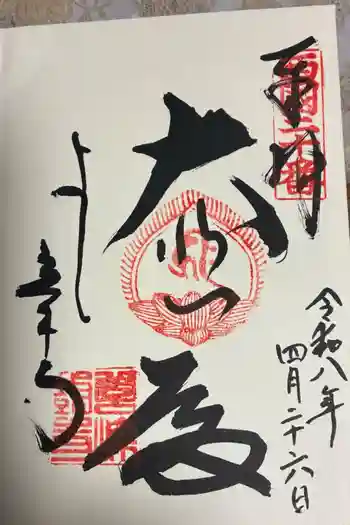 奉拝
西国二十番
大悲殿
令和八年
四月二十六日